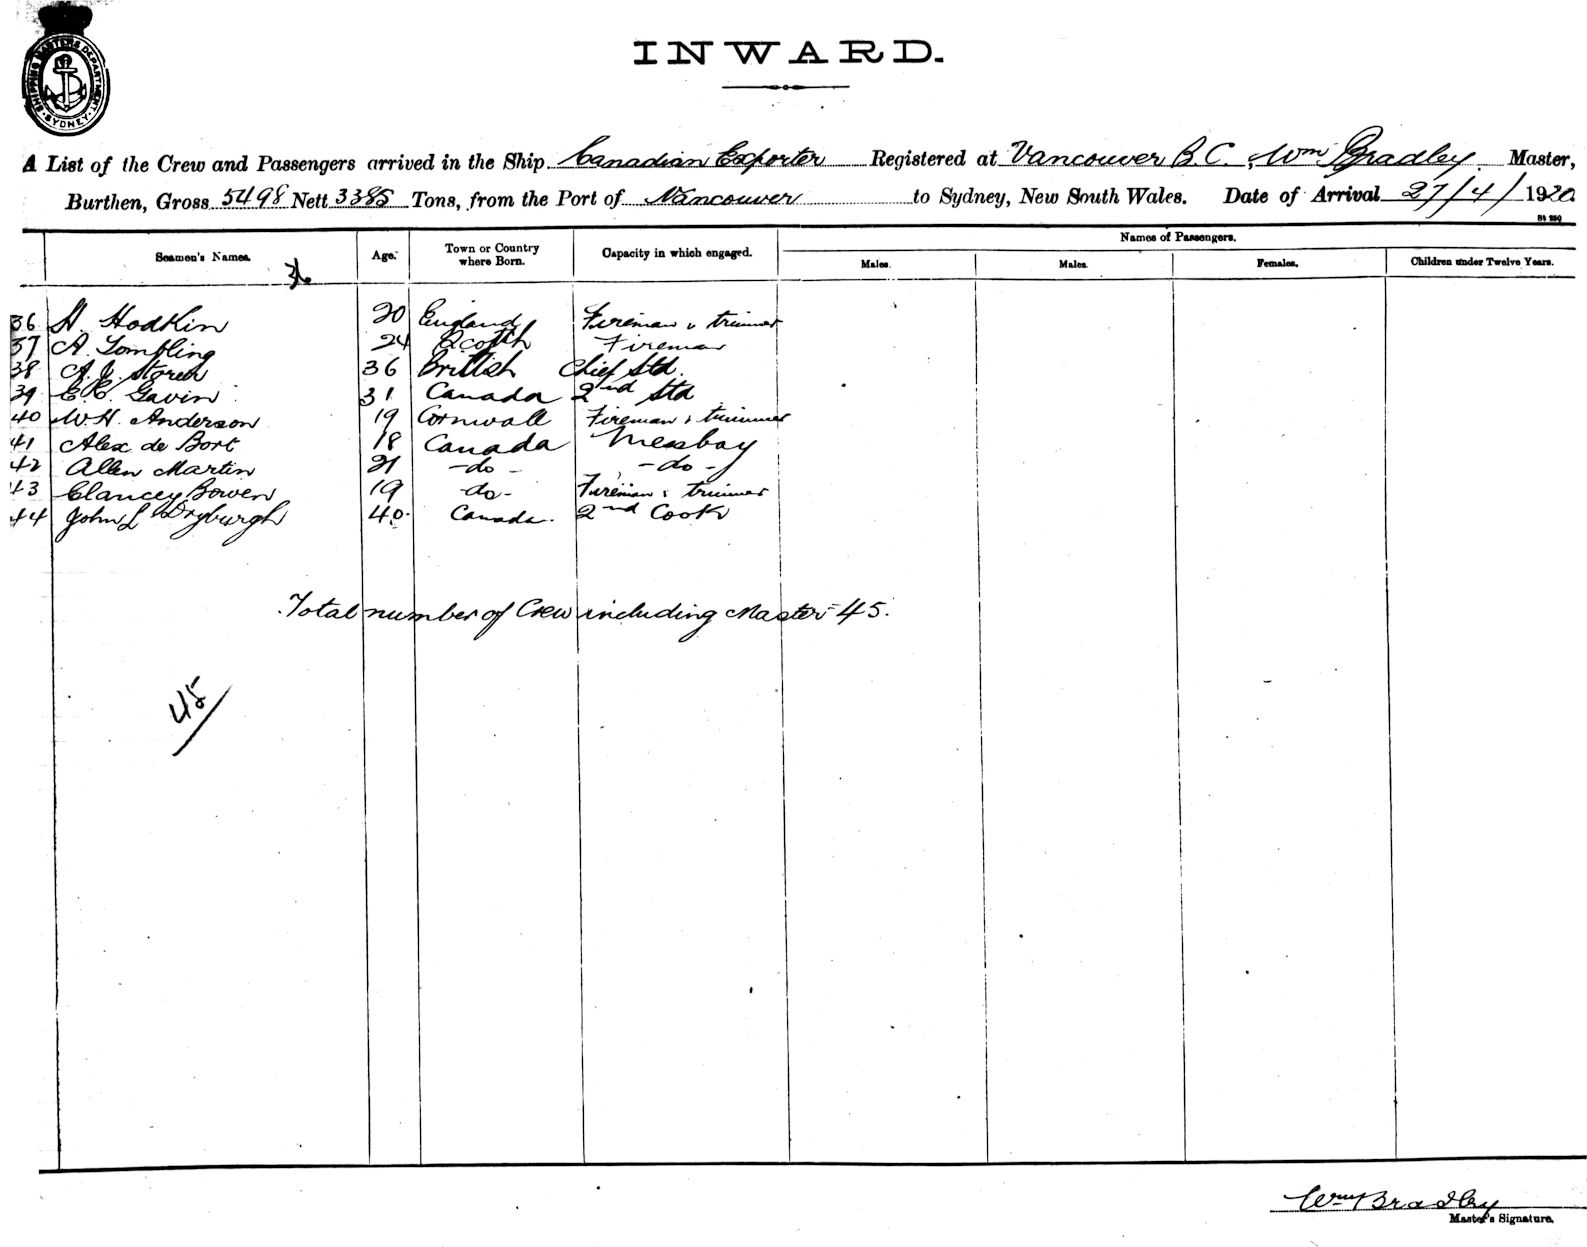 SHIPPING MASTERS DEPARTMENT
SYDNEY
INWARD.
A List of the Crew and Passengers arrived in the Ship Canadian Exporter Registered at Vancouver B.C., Wm Bradley Master,
Burthen, Gross 5498 Nett 3385 Tons, from the Port of Vancouver to Sydney, New South Wales. Date of Arrival 27/4/1920
Seamen's Names. Age. Town or Country where Born. Capacity in which engaged. Names of Passengers.
Males. Males. Females. Children under Twelve Years.
36 H. Hodkin 20 England Fireman & trimmer
37 A. Tombling 24 Scotch Fireman
38 A. J. Storen 36 British Chief Std.
39 E. E. Gavin 31 Canada 2nd Std
40 W. H. Anderson 19 Cornwall Fireman & trimmer
41 Alex de Bort 18 Canada Messboy
42 Allen Martin 21 -do- -do-
43 Clancey Bowen 19 -do- Fireman & trimmer
44 John L Dryburgh 40. Canada. 2nd Cook
Total number of Crew including Master - 45.
45/
Wm Bradley
Master's Signature.